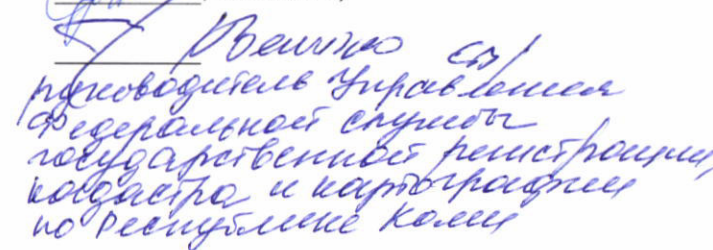 Величко С.В.
руководитель Управления
Федеральной службы
государственной регистрации,
кадастра и картографии
по Республике Коми